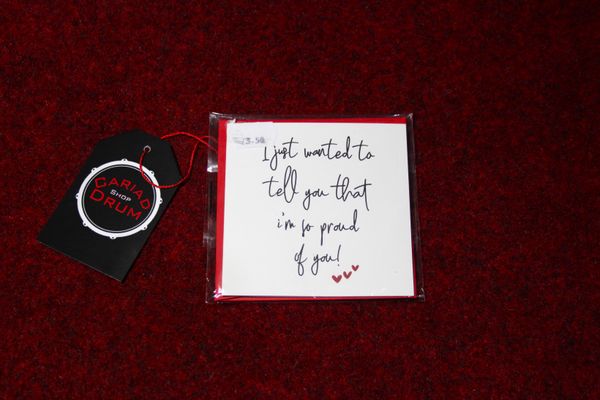 CARIAD
SHOP
DRUM
3.50
I just wanted to
tell you that
i'm so proud
of you!